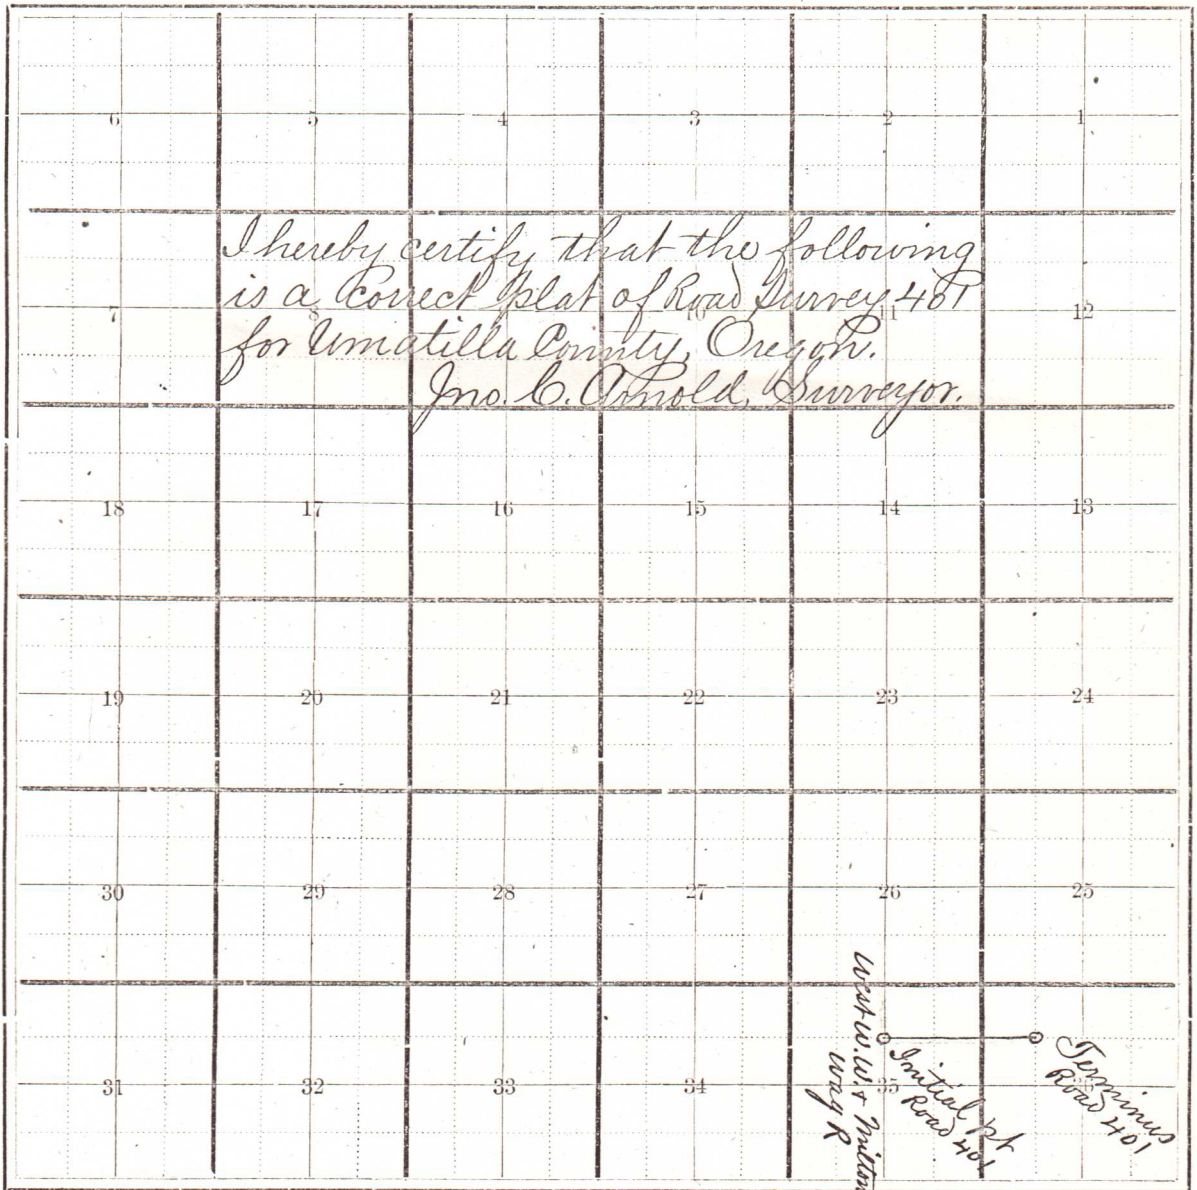 6 5 4 3 2 1
I hereby certify that the following
is a correct plat of Road Survey 401
for Umatilla County, Oregon.
Jno. C. Arnold, Surveyor.
7 8 10 11 12
18 17 16 15 14 13
19 20 21 22 23 24
30 29 28 27 26 25
31 32 33 34 35
West W.W. & Milton
Way R
Initial pt
Road 401
Terminus
Road 401